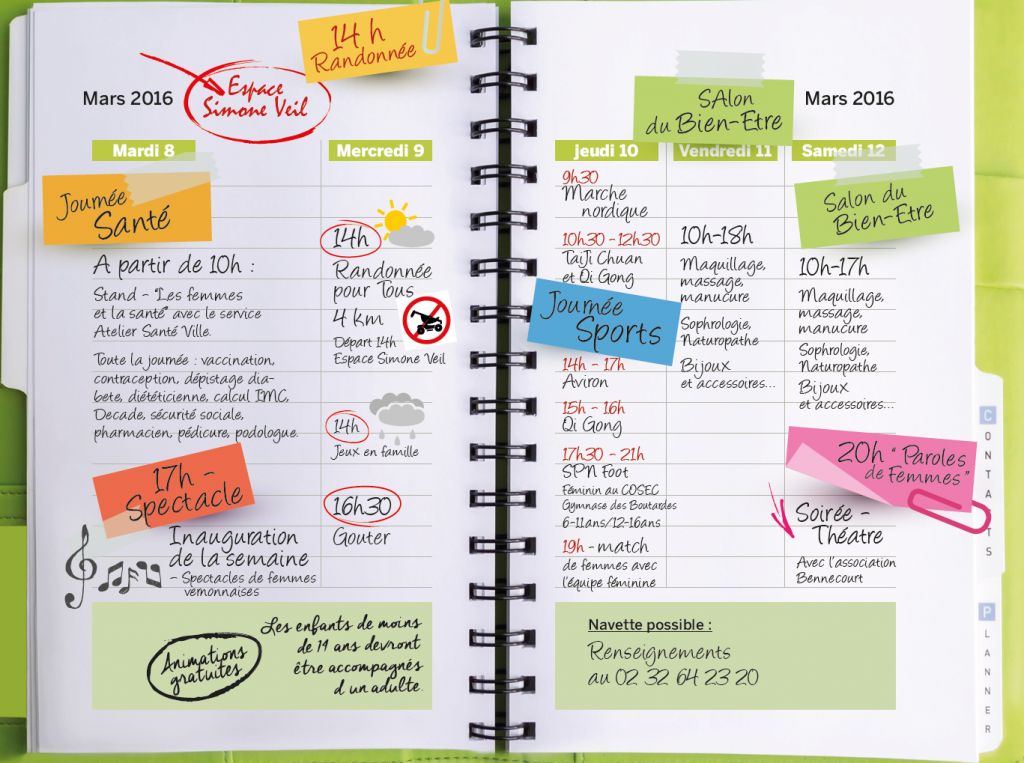 14 h
Randonnée
Mars 2016
Espace
Simone Veil
Mardi 8
Mercredi 9
Journée
Santé
A partir de 10h :
Stand - "Les femmes
et la santé" avec le service
Atelier Santé Ville.
Toute la journée : vaccination,
contraception, dépistage dia-
bete, diététicienne, calcul IMC,
Decade, sécurité sociale,
pharmacien, pédicure, podologue.
17h -
Spectacle
Inauguration
de la semaine
- Spectacles de femmes
vernonnaises
14h
Randonnée
pour Tous
4 km
Départ 14h
Espace Simone Veil
14h
Jeux en famille
16h30
Gouter
Animations
gratuites
Les enfants de moins
de 14 ans devront
être accompagnés
d un adulte.
SAlon
du Bien-Etre
Mars 2016
jeudi 10
Vendredi 11
Samedi 12
9h30
Marche
nordique
10h30 - 12h30
TaiJi Chuan
et Qi Gong
Journée
Sports
14h - 17h
Aviron
15h - 16h
Qi Gong
17h30 - 21h
SPN Foot
Féminin au COSEC
Gymnase des Boutardes
6-11ans/12-16ans
19h - match
de femmes avec
l'équipe féminine
10h-18h
Maquillage,
massage,
manucure
Sophrologie,
Naturopathe
Bijoux
et accessoires...
Salon du
Bien-Etre
10h-17h
Maquillage,
massage,
manucure
Sophrologie,
Naturopathe
Bijoux
et accessoires...
20h "Paroles
de Femmes"
Soirée -
Théatre
Avec l'association
Bennecourt
Navette possible :
Renseignements
au 02 32 64 23 20
CONTACTS
PLANNER